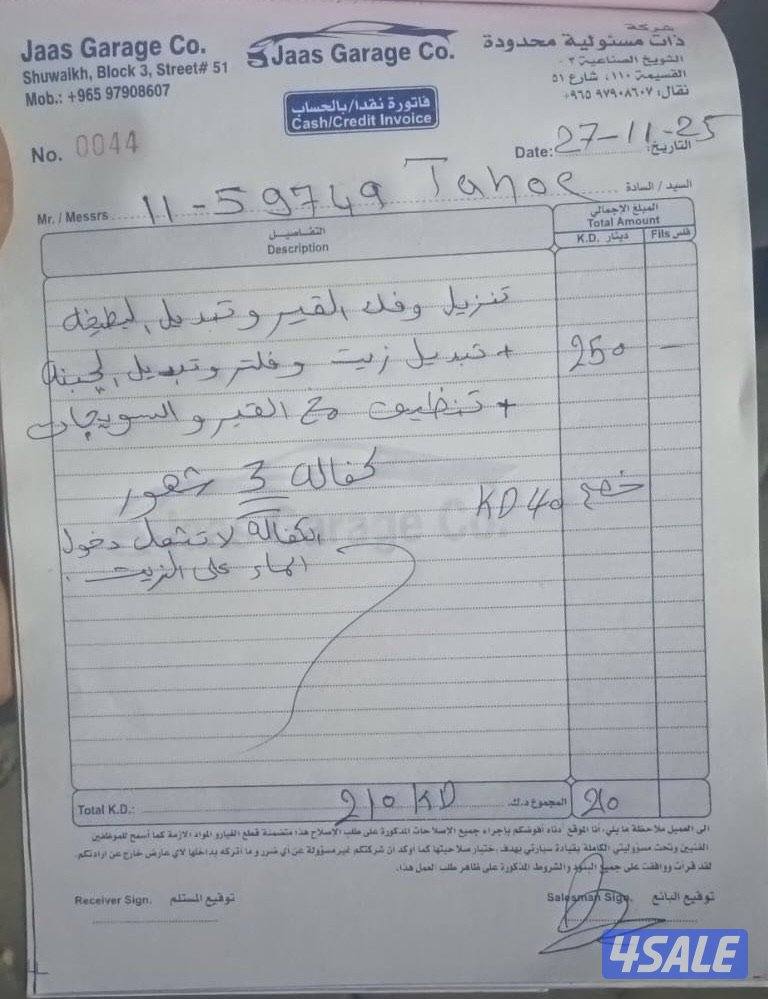 Jaas Garage Co.
Shuwaikh, Block 3, Street# 51
Mob.: +965 97908607
Jaas Garage Co.
شركة
ذات مسئولية محدودة
الشويخ الصناعية ٣ -
القسيمة ١١٠، شارع ٥١
نقال: ٩٧٩٠٨٦٠٧ ٩٦٥+
فاتورة نقدا/بالحساب
Cash/Credit Invoice
No. 0044
Date: 27-11-25 التاريخ:
Mr. / Messrs 11-59749 Tahoe السيد / السادة
التفاصيل
Description
المبلغ الإجمالي
Total Amount
K.D. دينار
Fils فلس
تنزيل وفك القير وتبديل البطيخه
+ تبديل زيت وفلتر وتبديل الجبنه 250 —
+ تنظيف مخ القير والسويجات
كفالة 3 شهور
خصم 40 KD
الكفالة لا تشمل دخول
الماء على الزيت
Jaas Garage Co.
Total K.D.: 210 KD المجموع د.ك. 210
الى العميل ملاحظة ما يلي، أنا الموقع أدناه أفوضكم بإجراء جميع الإصلاحات المذكورة على طلب الإصلاح هذا، متضمنة قطع الغيار والمواد اللازمة كما أسمح للموظفين
الفنيين وتحت مسؤوليتي الكاملة بقيادة سيارتي بهدف اختبار صلاحيتها كما أوكد ان شركتكم غير مسؤولة عن أي ضرر وما أتركه بداخلها لاي عارض خارج عن ارادتكم.
لقد قرأت ووافقت على جميع البنود والشروط المذكورة على ظاهر طلب العمل هذا.
Receiver Sign. توقيع المستلم
Salesman Sign. توقيع البائع
4SALE